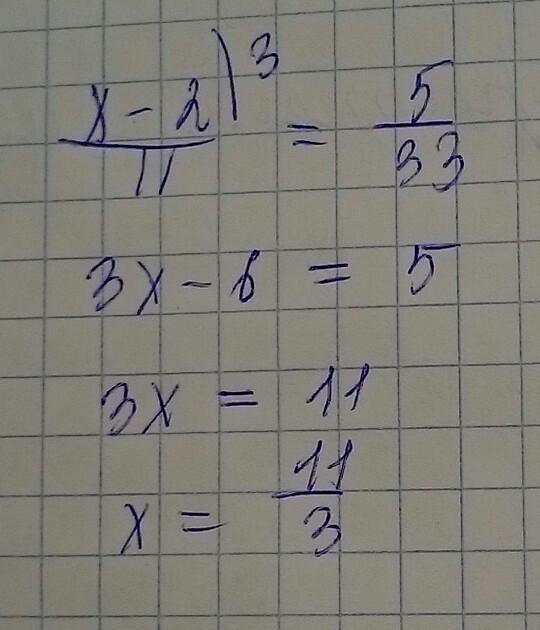 x - 2\3 / 11 = 5 / 33
3x - 6 = 5
3x = 11
x = 11 / 3